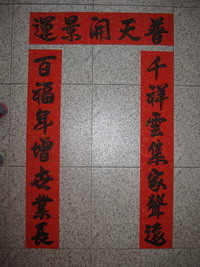 普天開景運
千祥雲集家聲遠
百福年增世業長